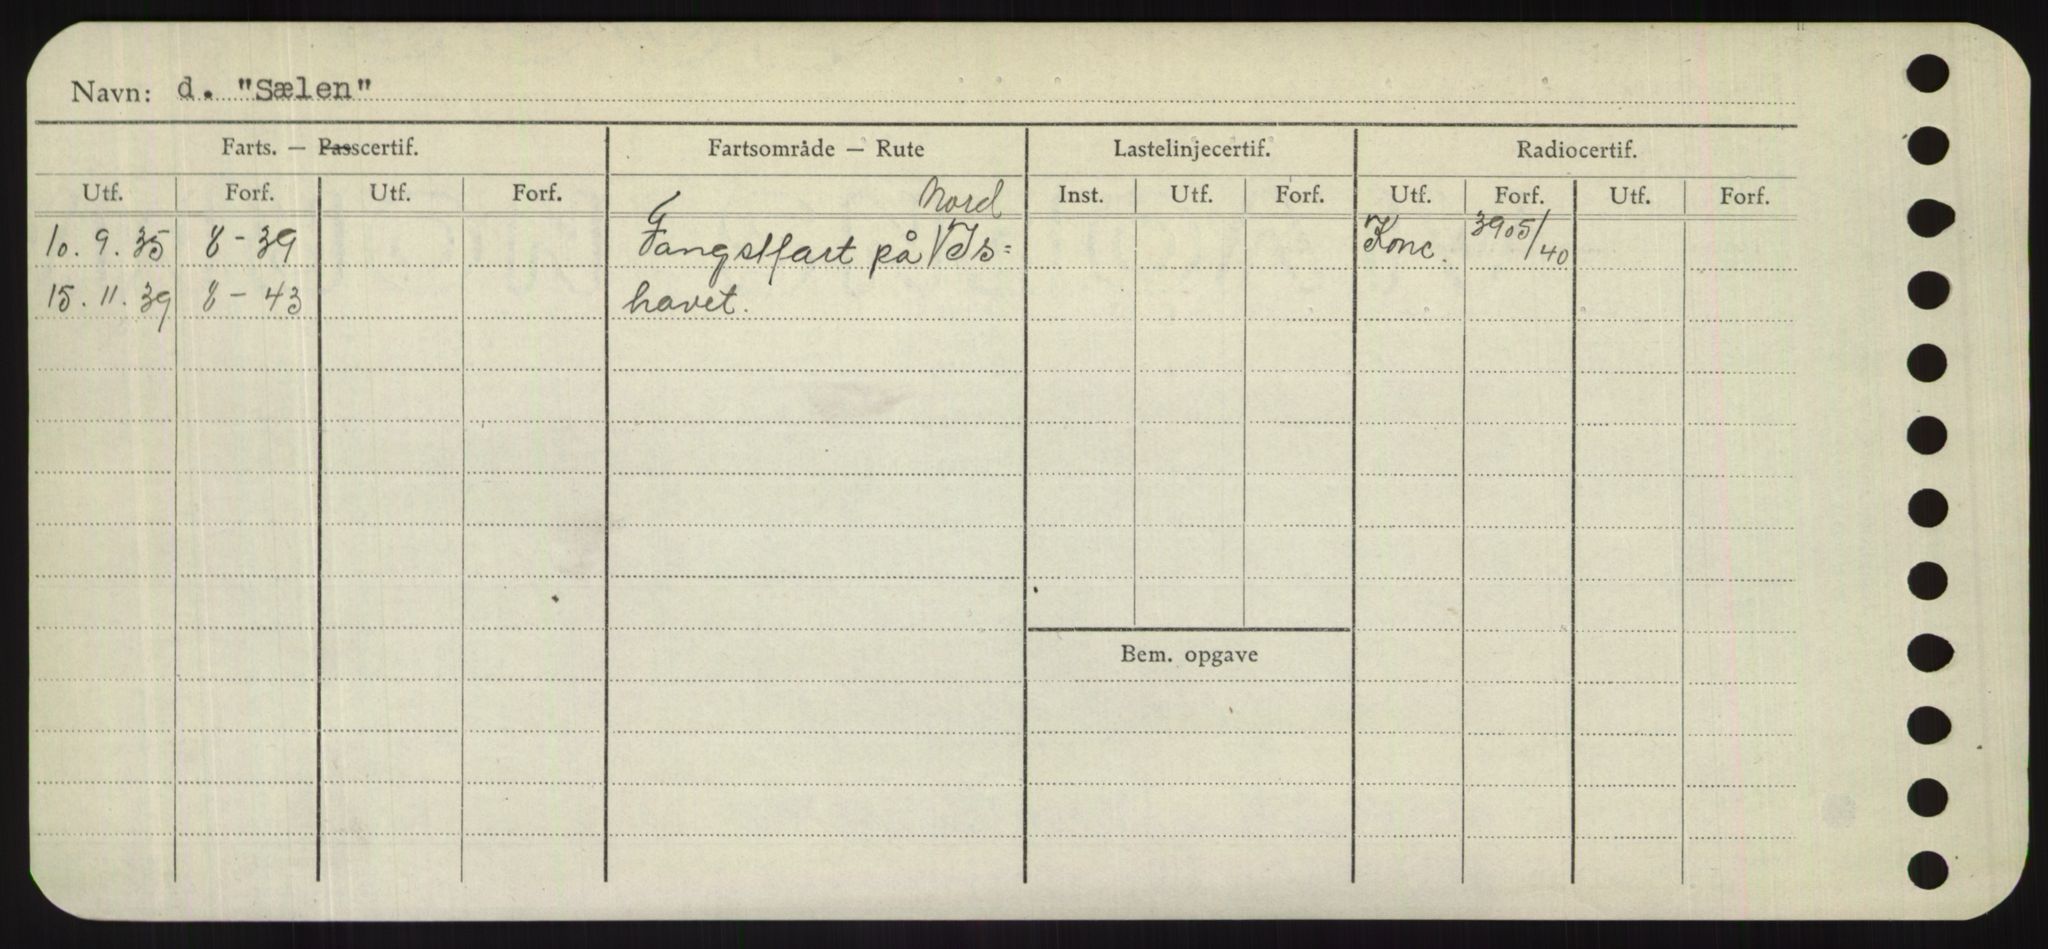 Navn: d. "Sælen"
Farts. — Passcertif. Fartsområde — Rute Lastelinjecertif. Radiocertif.
Utf. Forf. Utf. Forf. Nord Inst. Utf. Forf. Utf. Forf. Utf. Forf.
10. 9. 35 8 - 39 Fangstfart på Is= Konc. 3905/40
15. 11. 39 8 - 43 havet.
Bem. opgave